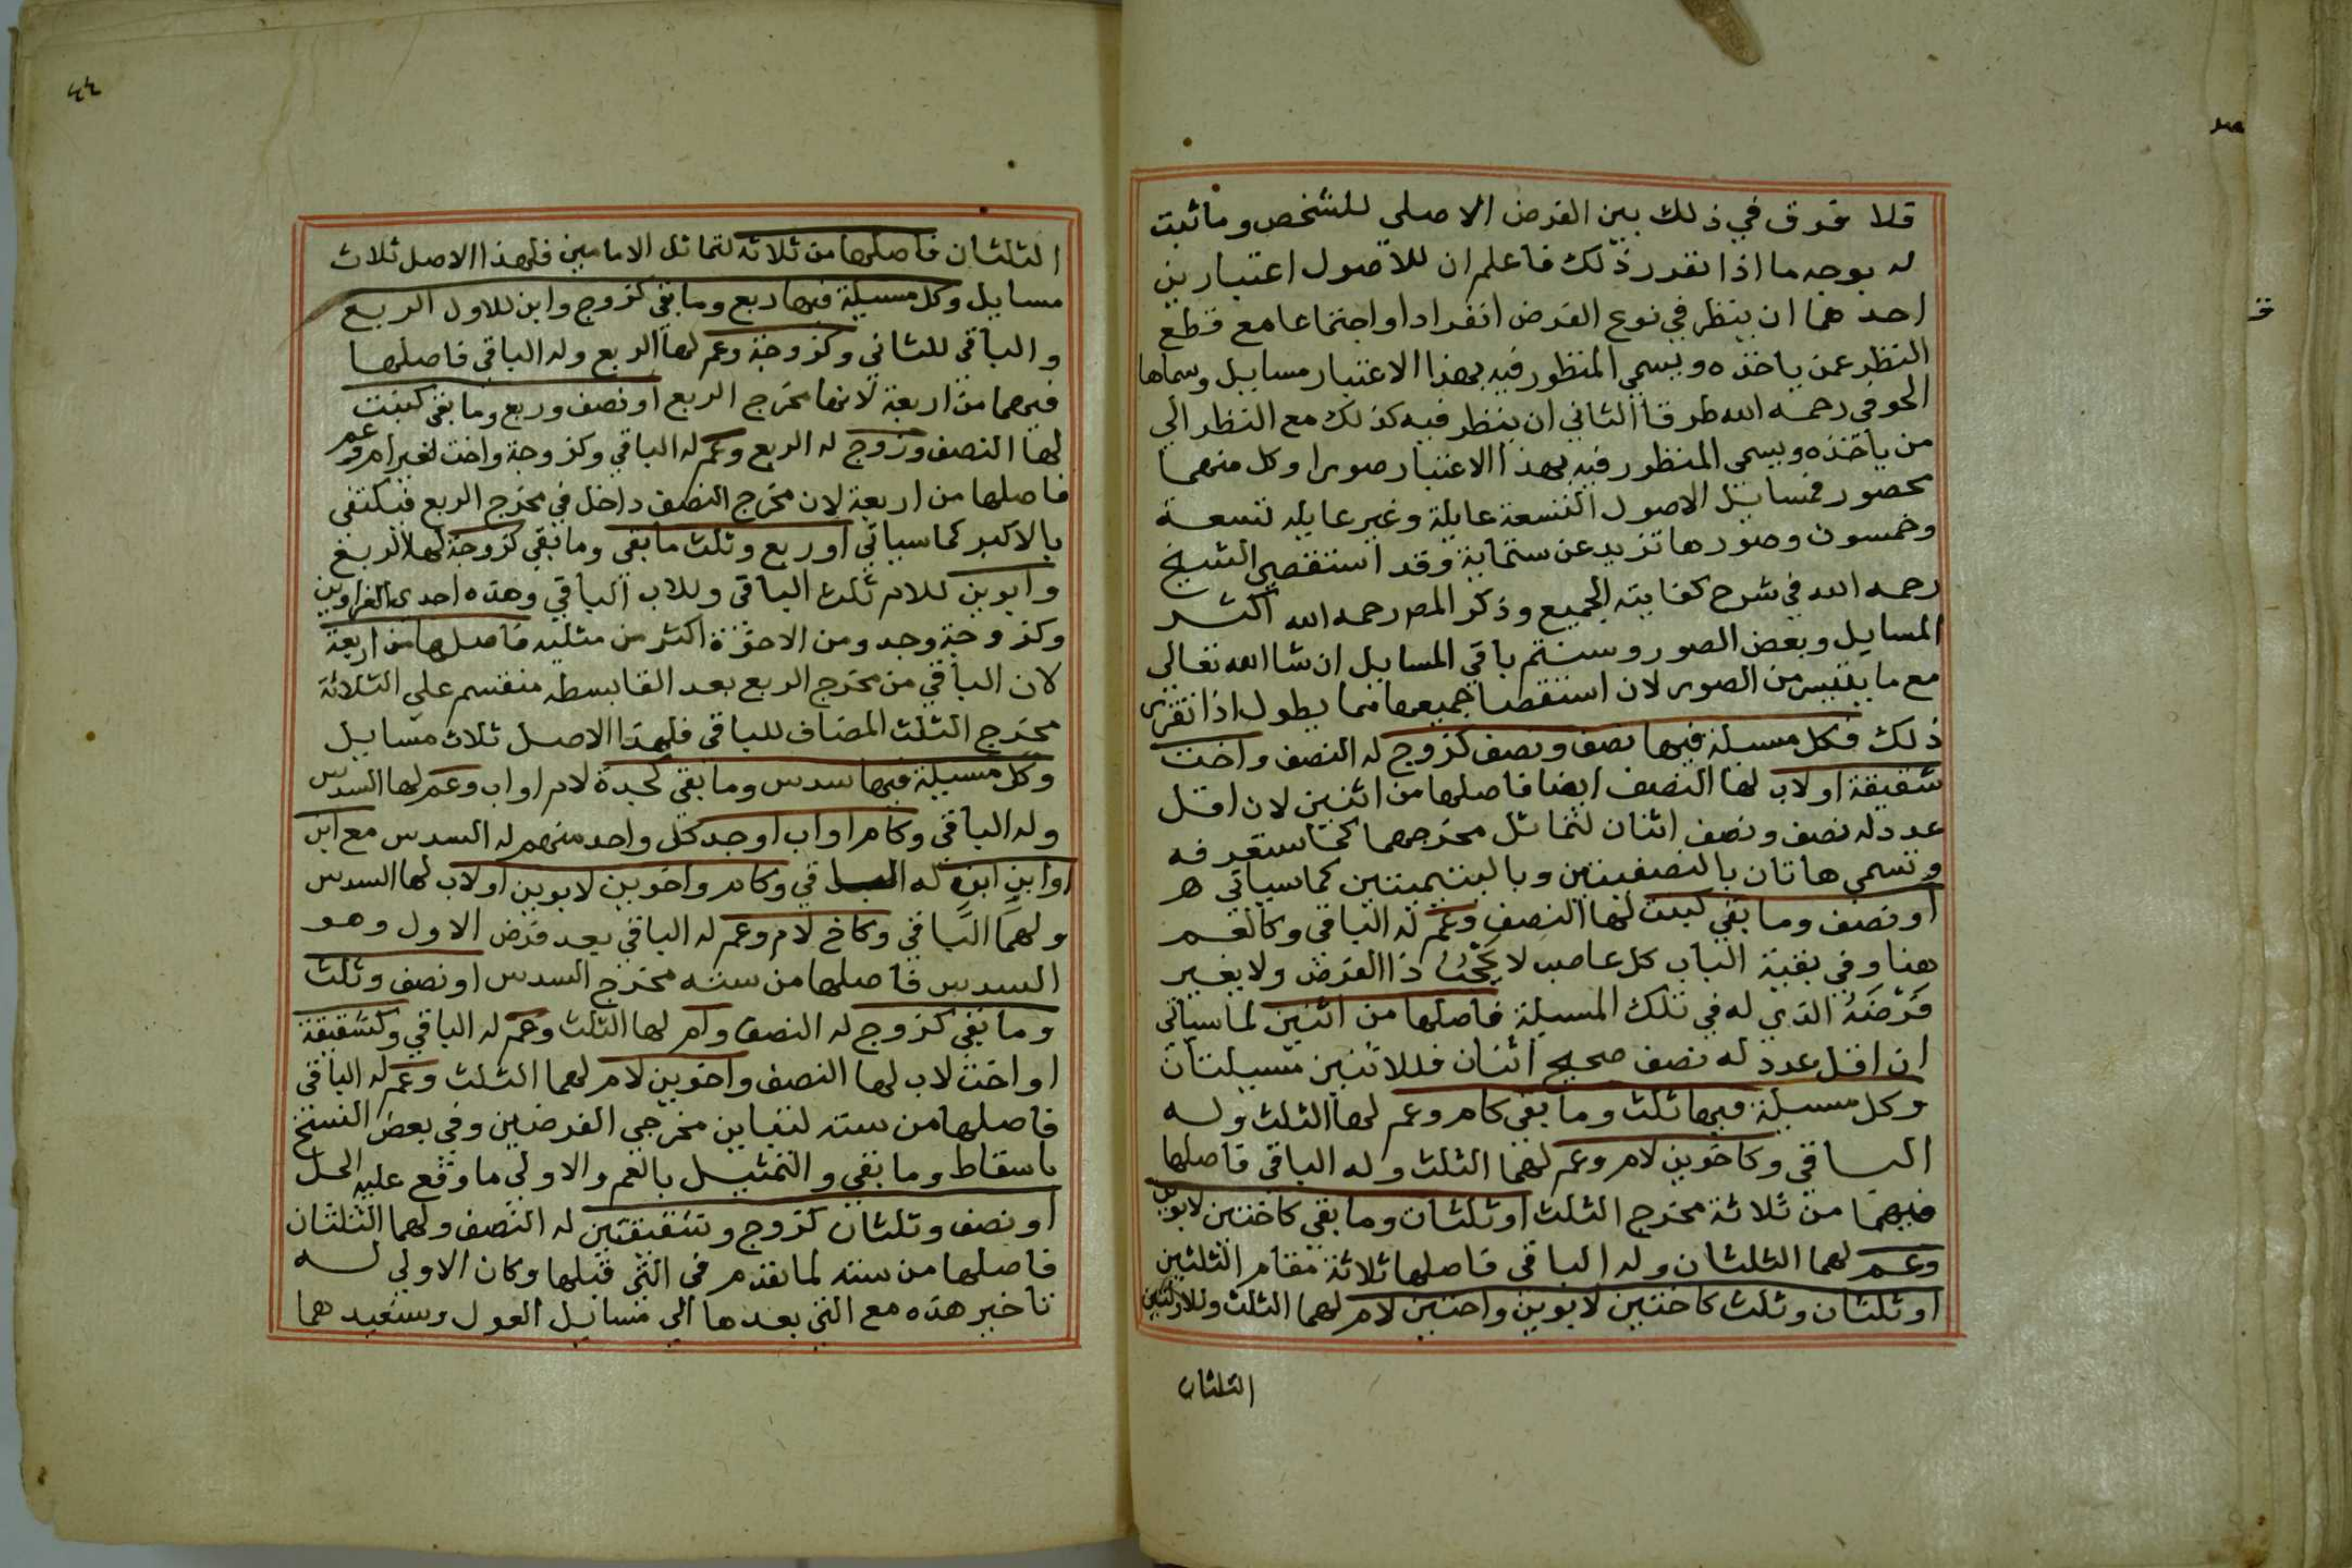 فلا فرق في ذلك بين الفرض الاصلي للشخص وما ثبت
له بوجه ما اذا تقرر ذلك فاعلم ان للاصول اعتبارين
احدهما ان ينظر في نوع الفرض انفرادا او اجتماعا مع قطع
النظر عمن ياخذه ويسمي المنظور فيه بهذا الاعتبار مسايل وسماها
الحوفي رحمه الله طرقا الثاني ان ينظر فيه كذلك مع النظر الي
من ياخذه ويسمي المنظور فيه بهذا الاعتبار صورا وكل منهما
محصور فمسايل الاصول التسعة عايلة وغير عايله تسعة
وخمسون وصورها تزيد عن ستماية وقد استقصي الشيخ
رحمه الله في شرح كفايته الجميع وذكر المصر رحمه الله اكثر
المسايل وبعض الصور وسنتم باقي المسايل ان شا الله تعالي
مع ما يتيسر من الصور لان استقصا جميعها مما يطول اذا تقرر
ذلك فكل مسيلة فيها نصف ونصف كزوج له النصف واخت
شقيقة او لاب لها النصف ايضا فاصلها من اثنين لان اقل
عدد له نصف ونصف اثنان لتماثل مخرجهما كما ستعرفه
وتسمي هاتان بالنصفيتين وباليتيميتين كما سياتي ه
او نصف وما بقي كبنت لها النصف وعم له الباقي وكالعم
هنا وفي بقية الباب كل عاصب لا يحجب ذا الفرض ولا يغير
فرضه الذي له في تلك المسيلة فاصلها من اثنين لما سياتي
ان اقل عدد له نصف صحيح اثنان فللاثنين مسيلتان
وكل مسيلة فيها ثلث وما بقي كام وعم لها الثلث وله
الباقي وكاخوين لام وعم لهما الثلث وله الباقي فاصلها
فيهما من ثلاثة مخرج الثلث او ثلثان وما بقي كاختين لابوين
وعم لهما الثلثان وله الباقي فاصلها ثلاثة مقام الثلثين
او ثلثان وثلث كاختين لابوين واختين لام لهما الثلث وللاولتين
الثلثان
٤٤
الثلثان فاصلها من ثلاثه لتماثل الامامين فلهذا الاصل ثلاث
مسايل وكل مسيلة فيها ربع وما بقي كزوج وابن للاول الربع
والباقي للثاني وكزوجة وعم لها الربع وله الباقي فاصلها
فيهما من اربعة لانها مخرج الربع او نصف وربع وما بقي كبنت
لها النصف وزوج له الربع وعم له الباقي وكزوجة واخت لغير ام وعم
فاصلها من اربعة لان مخرج النصف داخل في مخرج الربع فيكتفي
بالاكبر كما سياتي او ربع وثلث ما بقي وما بقي كزوجة لها الربع
وابوين للام ثلث الباقي وللاب الباقي وهذه احدي الغراوين
وكزوجة وجد ومن الاخوة اكثر من مثليه فاصلها من اربعة
لان الباقي من مخرج الربع بعد القا بسطه منقسم علي الثلاثة
مخرج الثلث المضاف للباقي فلهذا الاصل ثلاث مسايل
وكل مسيلة فيها سدس وما بقي كجدة لام او اب وعم لها السدس
وله الباقي وكام او اب او جد كل واحد منهم له السدس مع ابن
او ابن ابن له الباقي وكام واخوين لابوين او لاب لها السدس
ولهما الباقي وكاخ لام وعم له الباقي بعد فرض الاول وهو
السدس فاصلها من سته مخرج السدس او نصف وثلث
وما بقي كزوج له النصف وام لها الثلث وعم له الباقي وكشقيقة
او اخت لاب لها النصف واخوين لام لهما الثلث وعم له الباقي
فاصلها من سته لتباين مخرجي الفرضين وفي بعض النسخ
باسقاط وما بقي والتمثيل بالعم والاولي ما وقع عليه الحل
او نصف وثلثان كزوج وشقيقتين له النصف ولهما الثلثان
فاصلها من سته لما تقدم في التي قبلها وكان الاولي له
تاخير هذه مع التي بعدها الي مسايل العول وسنعيدهما